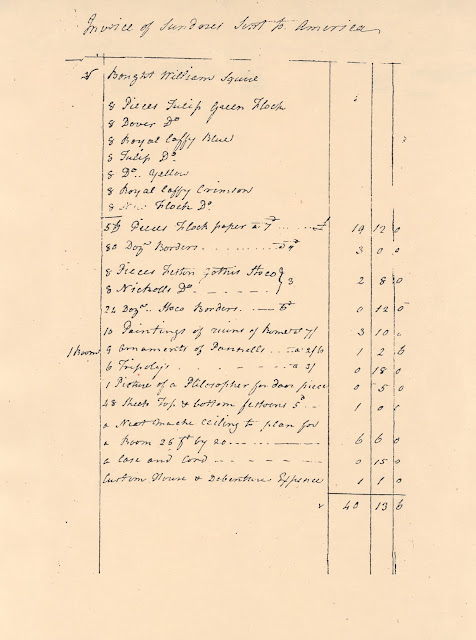 Invoice of Sundries Sent to America
Bought William Squire
8 Pieces Tulip Green Flock
8 Dover Do
8 Royal Caffy Blue
8 Tulip Do
8 Do .. Yellow
8 Royal Caffy Crimson
8 Flock Do
56 Pieces Flock paper a 7 19 12 0
80 Dozn Borders 3 0 0
8 Pieces Feston Gothic Stoco } 3 2 8 0
8 Nicholls Do
24 Dozn .. Stoco Borders 6d 0 12 0
10 Paintings of ruins of Rome at 7/ 3 10 0
1 Room 9 Ornaments of Pannells a 2/6 1 2 6
6 Tripolys a 3/ 0 18 0
1 Picture of a Philosopher for door piece 0 5 0
48 Sheets Top & bottom festoons 5d 1 0 0
a Neat Mache Ceiling to plan for
a Room 26 ft by 20 6 6 0
a Case and Cord 0 15 0
Custom House & Debenture Expence 1 1 0
40 13 6